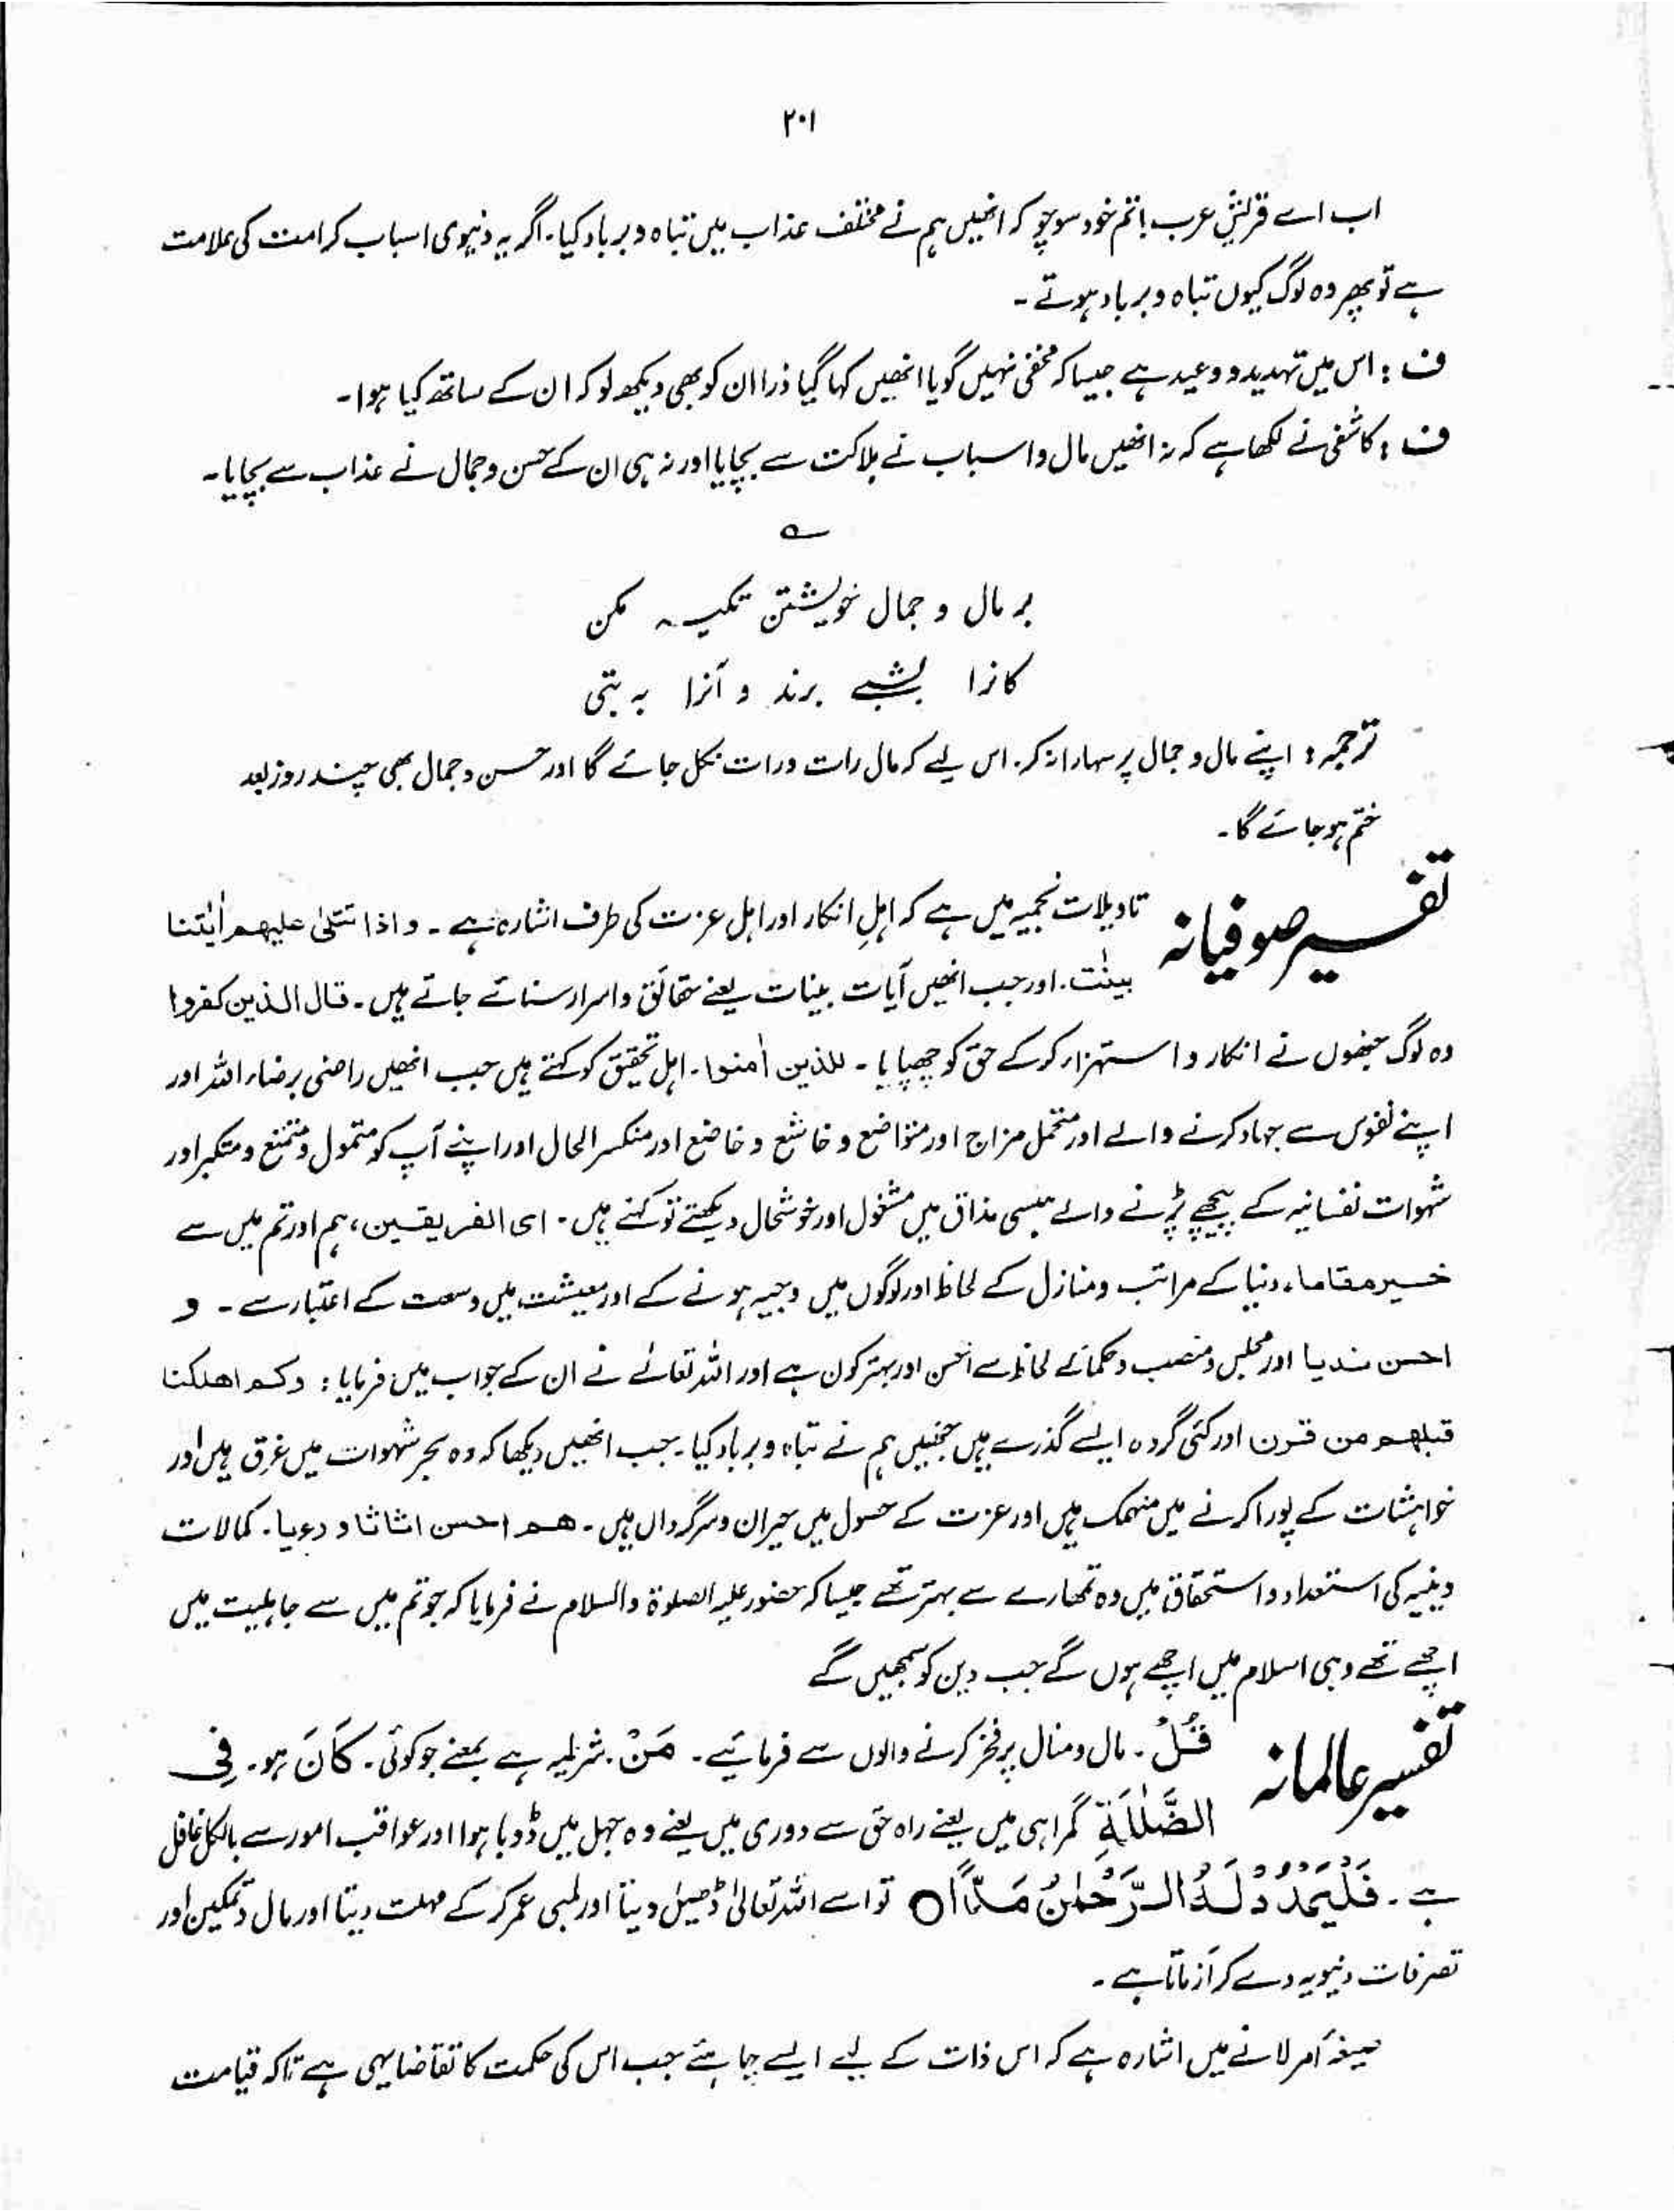 ۲۰۱
اب اے قریشِ عرب! تم خود سوچو کہ انھیں ہم نے مختلف عذاب میں تباہ و برباد کیا۔ اگر یہ دنیوی اسباب کرامت کی علامت
ہے تو پھر وہ لوگ کیوں تباہ و برباد ہوتے۔
ف : اس میں تہدید و وعید ہے جیسا کہ مخفی نہیں گویا انھیں کہا گیا ذرا ان کو بھی دیکھ لو کہ ان کے ساتھ کیا ہوا۔
ف : کاشفی نے لکھا ہے کہ نہ انھیں مال و اسباب نے ہلاکت سے بچایا اور نہ ہی ان کے حسن و جمال نے عذاب سے بچایا۔
؎
بر مال و جمال خویشتن تکیہ مکن
کانرا بشبے برند و آنرا بہ تبی
ترجمہ : اپنے مال و جمال پر سہارا نہ کر۔ اس لیے کہ مال رات ورات نکل جائے گا اور حسن و جمال بھی چند روز بعد
ختم ہو جائے گا۔
تفسیر صوفیانہ تاویلات نجمیہ میں ہے کہ اہلِ انکار اور اہل عزت کی طرف اشارہ ہے۔ و اذا تتلیٰ علیهم اٰیٰتنا
بینٰت۔ اور جب انھیں آیات بینات یعنے حقائق و اسرار سنائے جاتے ہیں۔ قال الذین کفروا
وہ لوگ جنھوں نے انکار و استہزاء کر کے حق کو چھپایا۔ للذین اٰمنوا۔ اہل تحقیق کو کہتے ہیں جب انھیں راضی برضاء اللہ اور
اپنے نفوس سے جہاد کرنے والے اور متحمل مزاج اور متواضع و خاشع و خاضع اور منکسر الحال اور اپنے آپ کو متمول و متمتع و متکبر اور
شہوات نفسانیہ کے پیچھے پڑنے والے ہنسی مذاق میں مشغول اور خوشحال دیکھتے تو کہتے ہیں۔ ای الفریقین، ہم اور تم میں سے
خیر مقاما، دنیا کے مراتب و منازل کے لحاظ اور لوگوں میں وجیہ ہونے کے اور معیشت میں وسعت کے اعتبار سے۔ و
احسن ندیا اور مجلس و منصب و حکما کے لحاظ سے احسن اور بہتر کون ہے اور اللہ تعالےٰ نے ان کے جواب میں فرمایا : وکم اهلکنا
قبلهم من قرن اور کئی گروہ ایسے گذرے ہیں جنھیں ہم نے تباہ و برباد کیا۔ جب انھیں دیکھا کہ وہ بحر شہوات میں غرق ہیں اور
خواہشات کے پورا کرنے میں منہمک ہیں اور عزت کے حصول میں حیران و سرگرداں ہیں۔ هم احسن اثاثا و رءیا۔ کمالات
دینیہ کی استعداد و استحقاق میں وہ تمھارے سے بہتر تھے جیسا کہ حضور علیہ الصلوۃ والسلام نے فرمایا کہ جو تم میں سے جاہلیت میں
اچھے تھے وہی اسلام میں اچھے ہوں گے جب دین کو سمجھیں گے
تفسیر عالمانہ قُلْ۔ مال و منال پر فخر کرنے والوں سے فرمائیے۔ مَنْ۔ شرطیہ ہے بمعنے جو کوئی۔ کَانَ ہو۔ فِی
الضَّلٰلَةِ گمراہی میں یعنے راہ حق سے دوری میں یعنے وہ جہل میں ڈوبا ہوا اور عواقب امور سے بالکل غافل
ہے۔ فَلْیَمْدُدْ لَهُ الرَّحْمٰنُ مَدًّا ○ تو اسے اللہ تعالیٰ ڈھیل دیتا اور لمبی عمر کر کے مہلت دیتا اور مال و تمکین اور
تصرفات دنیویہ دے کر آزماتا ہے۔
صیغۂ امر لانے میں اشارہ ہے کہ اس ذات کے لیے ایسے چاہئے جب اس کی حکمت کا تقاضا یہی ہے تاکہ قیامت